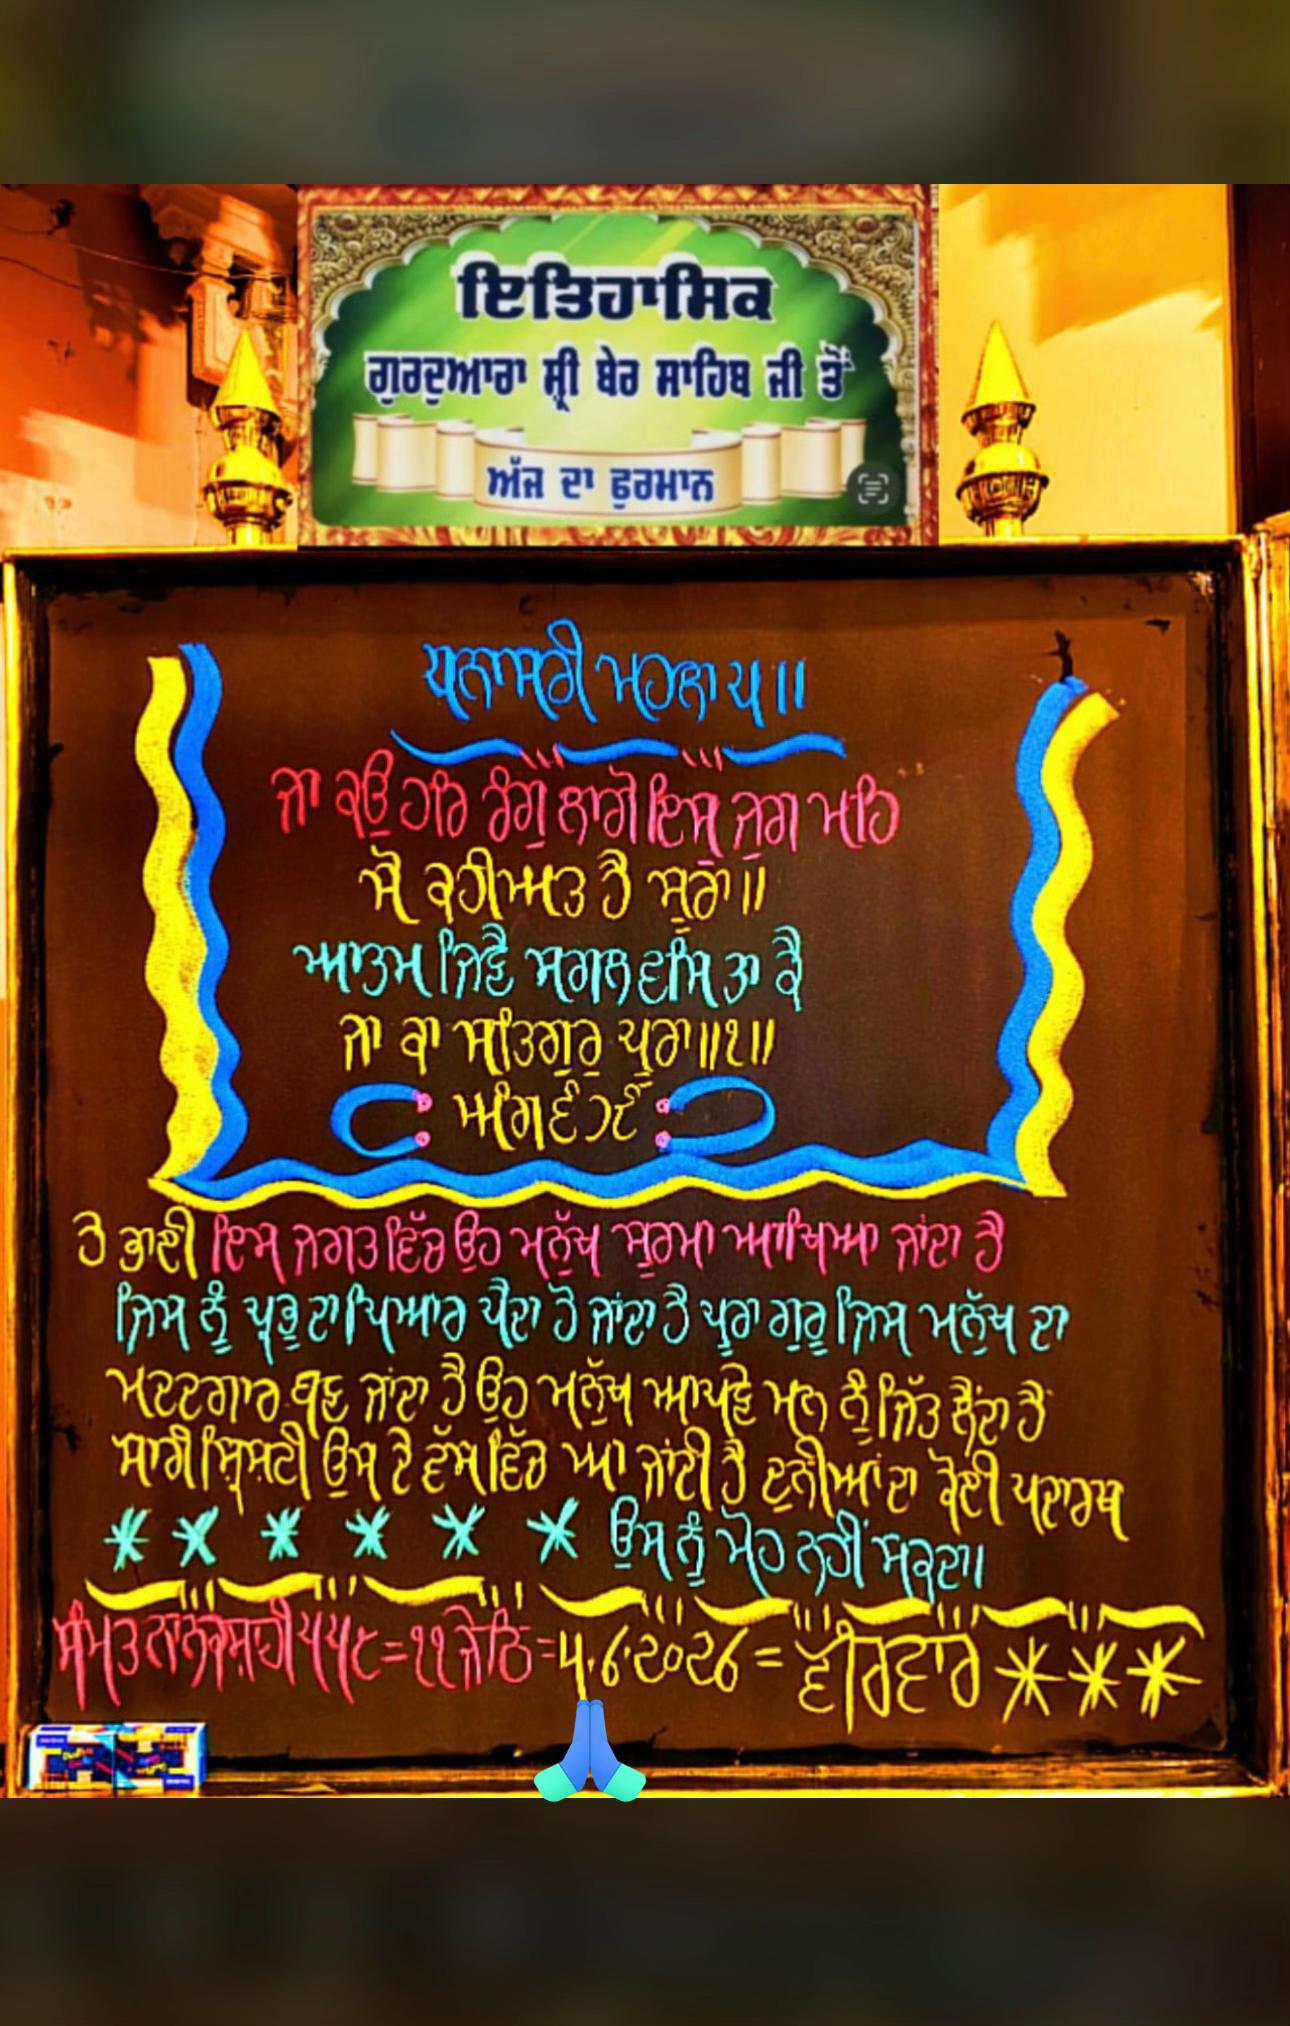 ਇਤਿਹਾਸਿਕ
ਗੁਰਦੁਆਰਾ ਸ੍ਰੀ ਬੇਰ ਸਾਹਿਬ ਜੀ ਤੋਂ
ਅੱਜ ਦਾ ਫੁਰਮਾਨ
ਧਨਾਸਰੀ ਮਹਲਾ ੫॥
ਜਾ ਕਉ ਹਰਿ ਰੰਗੁ ਲਾਗੋ ਇਸੁ ਜੁਗ ਮਹਿ
ਸੋ ਕਹੀਅਤ ਹੈ ਸੂਰਾ॥
ਆਤਮ ਜਿਣੈ ਸਗਲ ਵਸਿ ਤਾ ਕੈ
ਜਾ ਕਾ ਸਤਿਗੁਰੁ ਪੂਰਾ॥੧॥
ਅੰਗ ੬੭੯
ਹੇ ਭਾਈ ਇਸ ਜਗਤ ਵਿੱਚ ਉਹ ਮਨੁੱਖ ਸੂਰਮਾ ਆਖਿਆ ਜਾਂਦਾ ਹੈ
ਜਿਸ ਨੂੰ ਪ੍ਰਭੂ ਦਾ ਪਿਆਰ ਪੈਦਾ ਹੋ ਜਾਂਦਾ ਹੈ ਪੂਰਾ ਗੁਰੂ ਜਿਸ ਮਨੁੱਖ ਦਾ
ਮਦਦਗਾਰ ਬਣ ਜਾਂਦਾ ਹੈ ਉਹ ਮਨੁੱਖ ਆਪਣੇ ਮਨ ਨੂੰ ਜਿੱਤ ਲੈਂਦਾ ਹੈ
ਸਾਰੀ ਸ੍ਰਿਸ਼ਟੀ ਉਸ ਦੇ ਵੱਸ ਵਿੱਚ ਆ ਜਾਂਦੀ ਹੈ ਦੁਨੀਆਂ ਦਾ ਕੋਈ ਪਦਾਰਥ
ਉਸ ਨੂੰ ਮੋਹ ਨਹੀਂ ਸਕਦਾ।
ਸੰਮਤ ਨਾਨਕਸ਼ਾਹੀ ੫੫੮=੨੨ ਜੇਠ=੫.੬.੨੦੨੬=ਵੀਰਵਾਰ